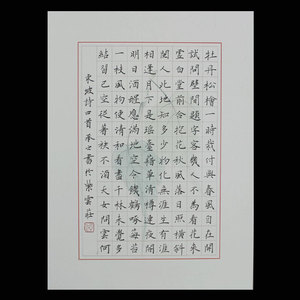 牡丹松檜一時栽付與春風自在開
試問壁間題字客幾人不為看花來
虛白堂前合抱花秋風落日照橫斜
閱人此地知多少物化無涯生有涯
相逢月下是瑤臺藉草清樽連夜開
明日酒醒應滿地空令饑鶴啄莓苔
一枝風物便清和看盡千林未覺多
結習已空從著袂不須天女問雲何
東坡詩四首 書於紫雲莊